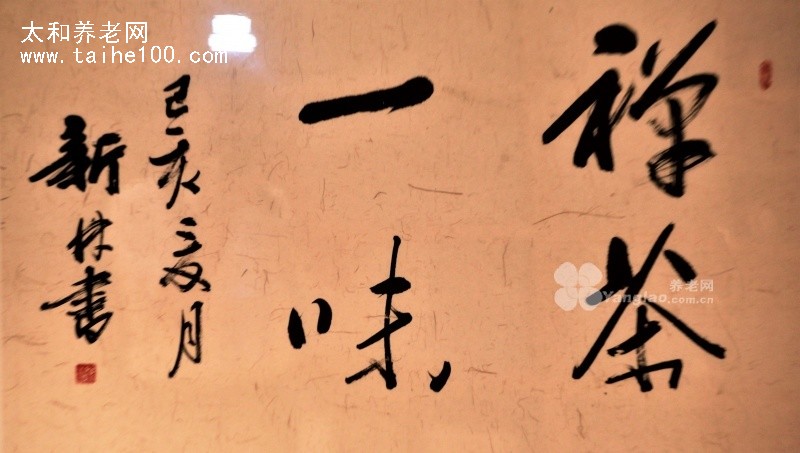 太和养老网
www.taihe100.com
禅茶
一味
己亥夏月
新林书
养老网
Yanglao.com.cn